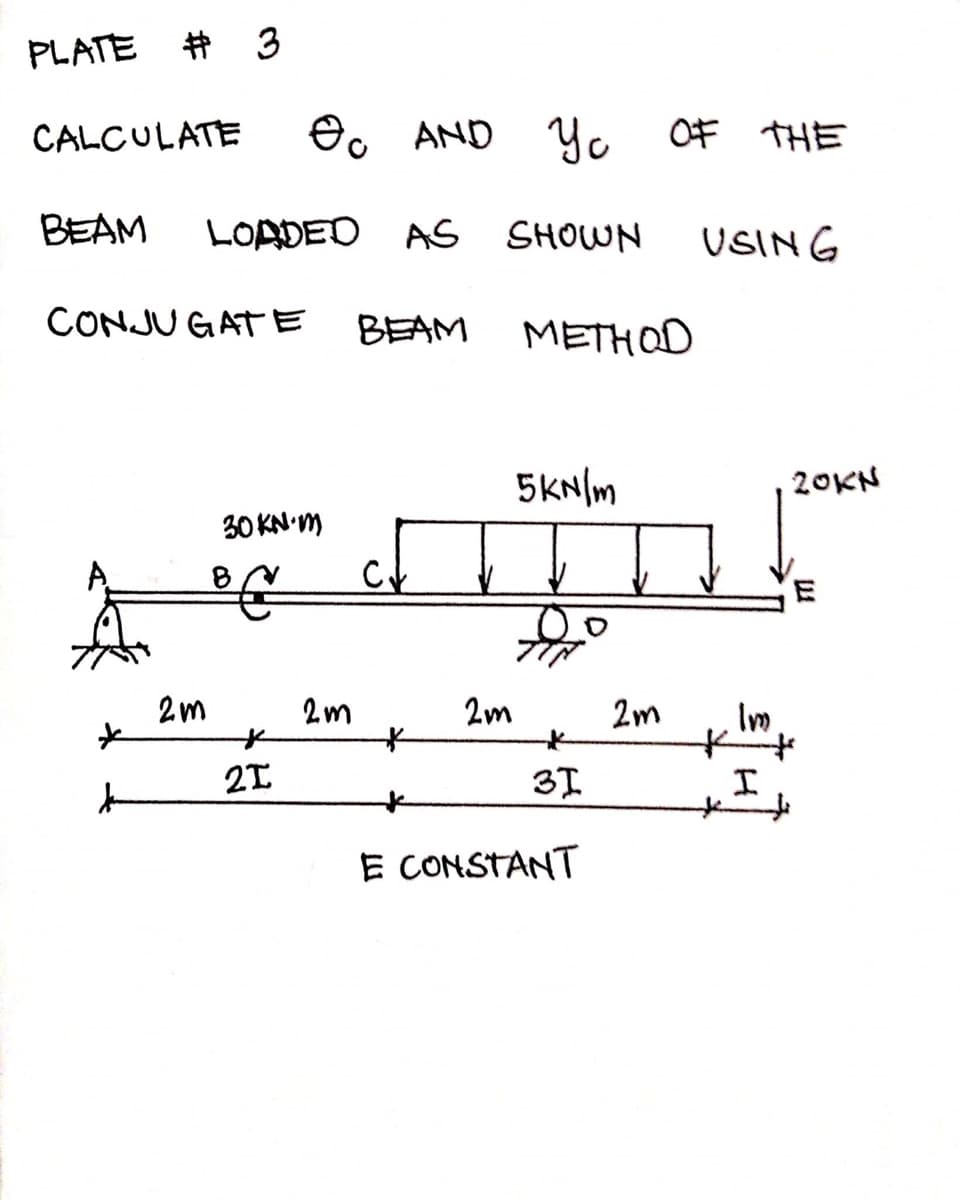 PLATE # 3
CALCULATE θc AND yc OF THE
BEAM LOADED AS SHOWN USING
CONJUGATE BEAM METHOD
5KN/m
20KN
30KN·m
A
B
C
E
D
2m 2m 2m 2m 1m
2I 3I I
E CONSTANT